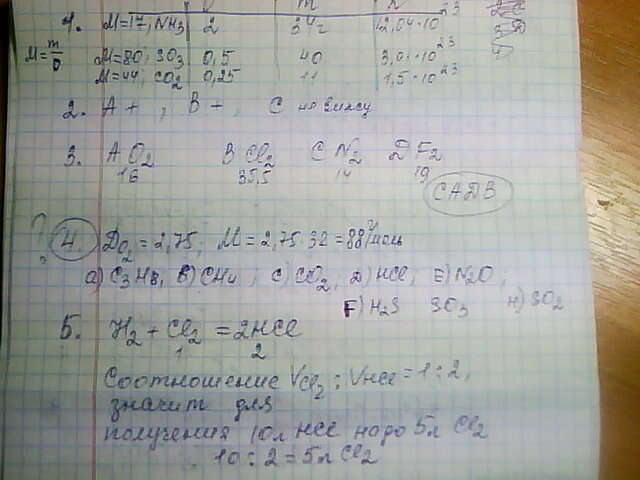 ν m N
1. M=17; NH3 2 34г 12,04·10²³
M=m/ν M=80; SO3 0,5 40 3,01·10²³
M=44; CO2 0,25 11 1,5·10²³
2. A + , B + , C
3. A O2 B Cl2 C N2 D F2
16 35,5 14 19
CADB
? 4. DO2 = 2,75; M = 2,75·32 = 88г/моль
a) C3H8, B) CH4, C) CO2, D) HCl, E) N2O;
F) H2S SO3 H) SO2
5. H2 + Cl2 = 2HCl
1 2
Соотношение VCl2 : VHCl = 1:2,
значит для
получения 10л HCl надо 5л Cl2
10 : 2 = 5л Cl2